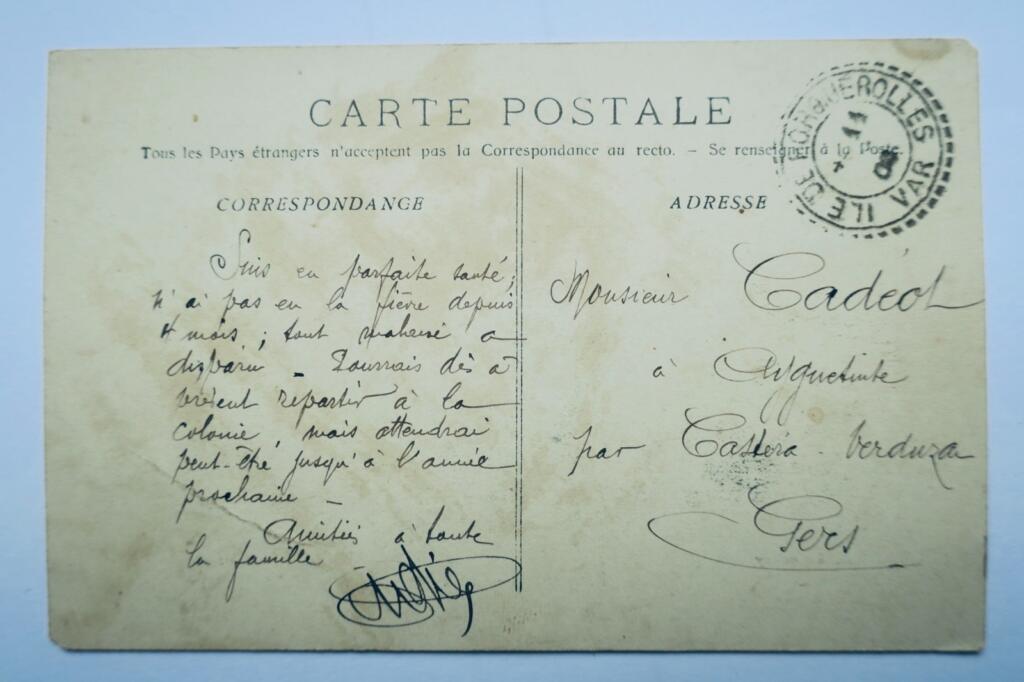 CARTE POSTALE
Tous les Pays étrangers n'acceptent pas la Correspondance au recto. — Se renseigner à la Poste.
CORRESPONDANCE
Suis en parfaite santé;
n'ai pas eu la fièvre depuis
4 mois; tout malaise a
disparu - Pourrais dès à
présent repartir à la
colonie, mais attendrai
peut-être jusqu'à l'année
prochaine -
Amitiés à toute
la famille
ADRESSE
Monsieur Cadéot
à Ayguetinte
par Castéra-Verduzan
Gers
ILE DE PORQUEROLLES
VAR
11